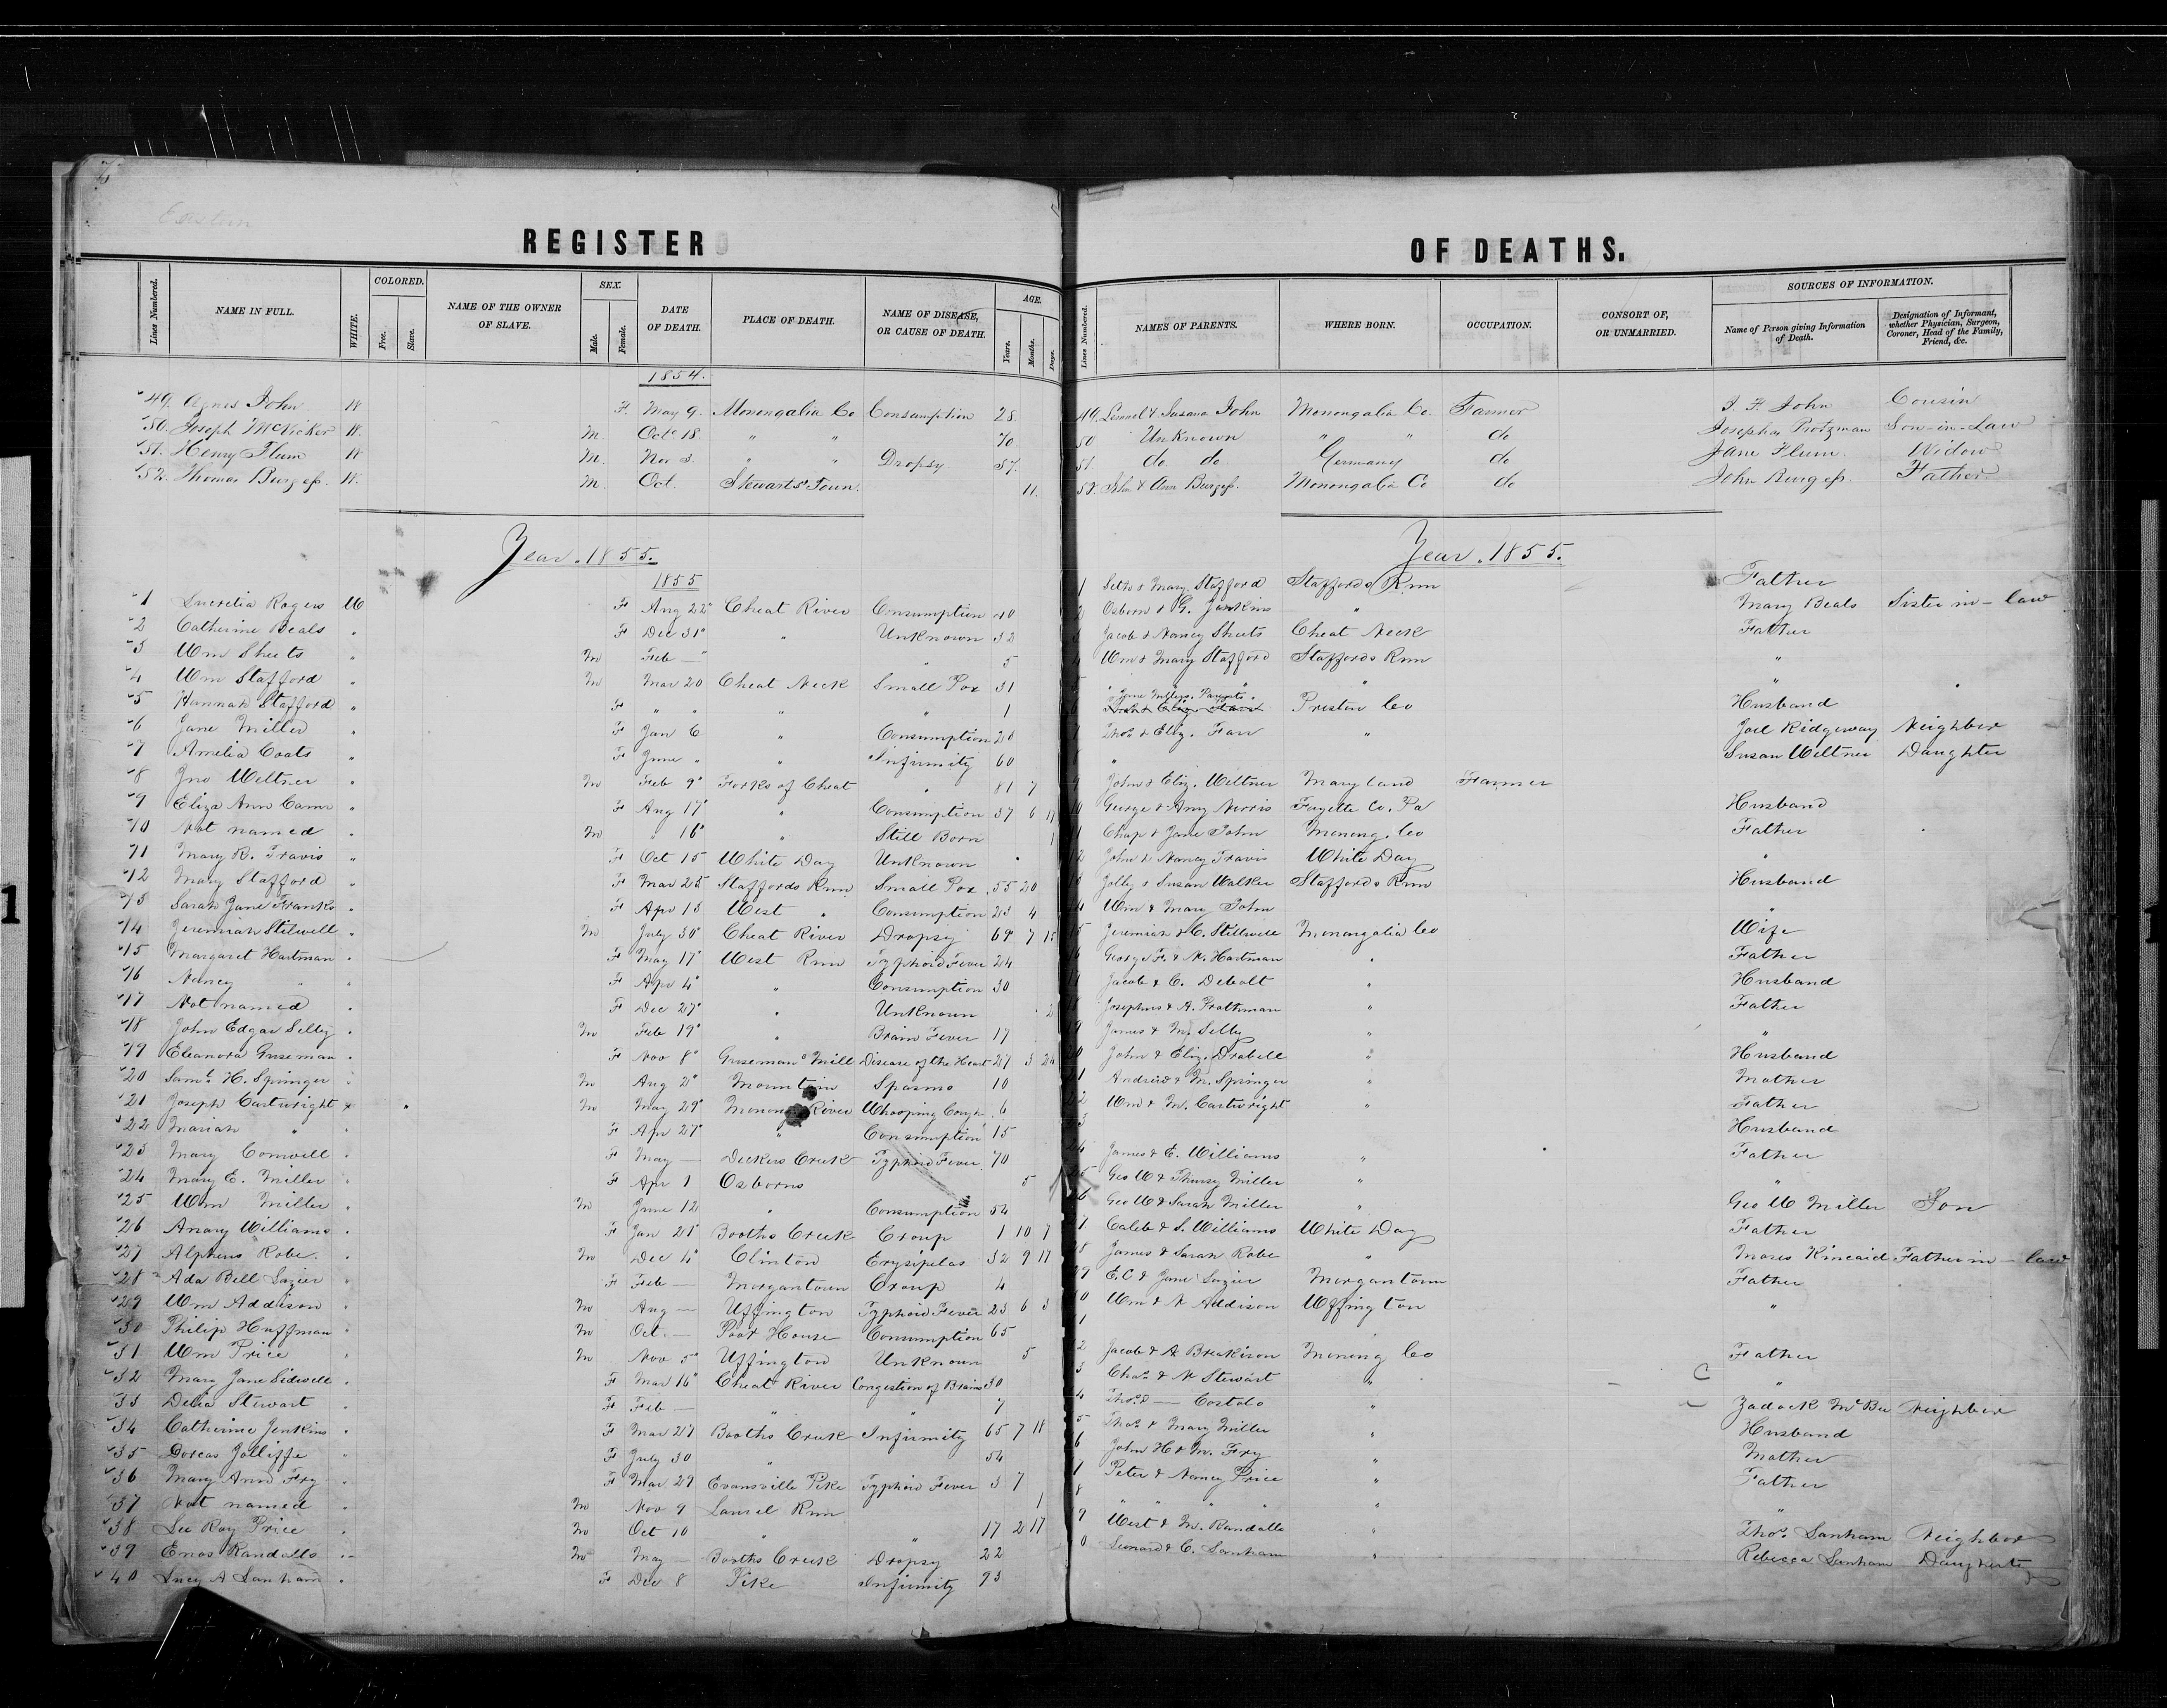 Eastern
REGISTER OF DEATHS.
Lines Numbered. NAME IN FULL. WHITE. COLORED. Free. Slave. NAME OF THE OWNER OF SLAVE. SEX. Male. Female. DATE OF DEATH. PLACE OF DEATH. NAME OF DISEASE, OR CAUSE OF DEATH. AGE. Years. Months. Days. Lines Numbered. NAMES OF PARENTS. WHERE BORN. OCCUPATION. CONSORT OF, OR UNMARRIED. SOURCES OF INFORMATION. Name of Person giving Information of Death. Designation of Informant, whether Physician, Surgeon, Coroner, Head of the Family, Friend, &c.
1854.
49. Agnes John W F. May 9. Monongalia Co Consumption 28. 49. Lemuel & Susana John Monongalia Co. Farmer J. F. John Cousin
50. Joseph McVicker W. M. Oct 18. " " 70 50 Unknown " " do Josephus Protzman Son-in-Law
51. Henry Flum W M. Nov 3. " " Dropsy 57. 51. do do Germany do Jane Flum. Widow
52. Thomas Burgess. W. M. Oct. Stewarts' Town. 11. 52. John & Ann Burgess. Monongalia Co do John Burgess. Father
Year. 1855. Year. 1855.
1855
1 Lucretia Rogers W F Aug 22 Cheat River Consumption 40 1 Seth & Mary Stafford Staffords Run Father
2 Catherine Beals " F Dec 31 " Unknown 32 2 Osborn & G. Jenkins " Mary Beals Sister in-law
3 Wm Sheets " M Feb — " " 5 3 Jacob & Nancy Sheets Cheat Neck Father
4 Wm Stafford " M Mar 20 Cheat Neck Small Pox 31 4 Wm & Mary Stafford Staffords Run "
5 Hannah Stafford " F " " " " 1 5 " " " "
6 Jane Miller " F Jan 6 " Consumption 20 6 Jane Millers. Parents. Preston Co Husband
7 Amelia Coats " F June " " Infirmity 60 7 Thos & Eliz. Farr " Joel Ridgeway Neighbor
8 Jno Weltner " M Feb 9 Forks of Cheat " 81 7 " Susan Weltner Daughter
9 Eliza Ann Camr " F Aug 17 " Consumption 37 6 11 9 John & Eliz. Weltner Maryland Farmer
10 Not named " M " 16 " Still Born 1 10 George & Amy Norris Fayette Co. Pa Husband
11 Mary R. Travis " F Oct 15 White Day Unknown " 11 Chap & Jane John Monong. Co Father
12 Mary Stafford " F Mar 25 Staffords Run Small Pox 55 20 12 John & Nancy Travis White Day "
13 Sarah Jane Franks " F Apr 13 West " Consumption 23 4 13 Jolly & Susan Walker Staffords Run Husband
14 Jeremiah Stilwell " M July 30 Cheat River Dropsy 69 7 15 14 Wm & Mary John "
15 Margaret Hartman " F May 17 West Run Typhoid Fever 24 15 Jeremiah & C. Stillwell Monongalia Co Wife
16 Nancy " " F Apr 4 " Consumption 30 16 George F. & N. Hartman " Father
17 Not named " F Dec 27 " Unknown 2 17 Jacob & C. Debolt " Husband
18 John Edgar Selby " M Feb 19 " Brain Fever 17 18 Josephus & A. Prathman " Father
19 Eleanora Guseman " F Nov 8 Guseman's Mill Disease of the Heart 27 3 24 19 James & M. Selby " "
20 Saml H. Springer " M Aug 2 Mountain Spasms 10 20 John & Eliz. Drabell " Husband
21 Joseph Cartwright " M May 29 Monong River Whooping Cough 6 21 Andrew & M. Springer " Mother
22 Mariah " " F Apr 27 " Consumption 15 22 Wm & M. Cartwright " Father
23 Mary Conwell " F May — Deckers Creek Typhoid Fever 70 3 Husband
24 Mary E. Miller " F Apr 1 Osborns 5 4 James & E. Williams " Father
25 Wm Miller " M June 12 " Consumption 54 5 Geo W & Thursy Miller " "
26 Anary Williams " F Jan 21 Booths Creek Croup 1 10 7 6 Geo W & Sarah Miller " Geo W Miller Son
27 Alpheus Robe " M Dec 4 Clinton Erysipelas 32 9 17 7 Caleb & S. Williams White Day Father
28 Ada Bell Lazier " F Feb — Morgantown Croup 4 8 James & Sarah Robe " Moses Kincaid Father in-law
29 Wm Addison " M Aug — Uffington Typhoid Fever 23 6 3 29 E. C & Jane Lazier Morgantown Father
30 Philip Huffman " M Oct. — Poor House Consumption 65 0 Wm & N Addison Uffington "
31 Wm Price " M Nov 5 Uffington Unknown 5 1
32 Mary Jane Sidwell " F Mar 16 Cheat River Congestion of Brains 30 2 Jacob & A Breakison Monong Co Father
33 Delia Stewart " F Feb — " " 7 3 Chas & N Stewart " "
34 Catherine Jenkins " F Mar 27 Booths Creek Infirmity 65 7 18 4 Thos & — Costolo " Zadock McBee Neighbor
35 Dorcas Jolliffe " F July 30 " 54 5 Thos & Mary Miller " Husband
36 Mary Ann Fry " F Mar 29 Evansville Pike Typhoid Fever 3 7 6 John H & M. Fry " Mother
37 Not named " M Nov 9 Laurel Run 1 7 Peter & Nancy Price " Father
38 Lee Roy Price " M Oct 10 " " 17 2 17 8 " " " " " "
39 Enos Randalls " M May — Booths Creek Dropsy 22 9 West & M. Randalls " Thos. Lanham Neighbor
40 Lucy A Lanham " F Dec 8 Pike Infirmity 93 0 Leonard & C. Lanham " Rebecca Lanham Daughter